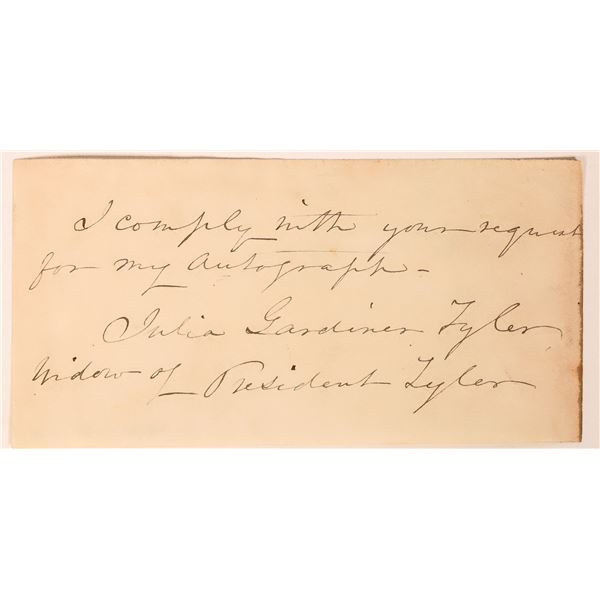 I comply with your request
for my Autograph -
Julia Gardiner Tyler
Widow of President Tyler